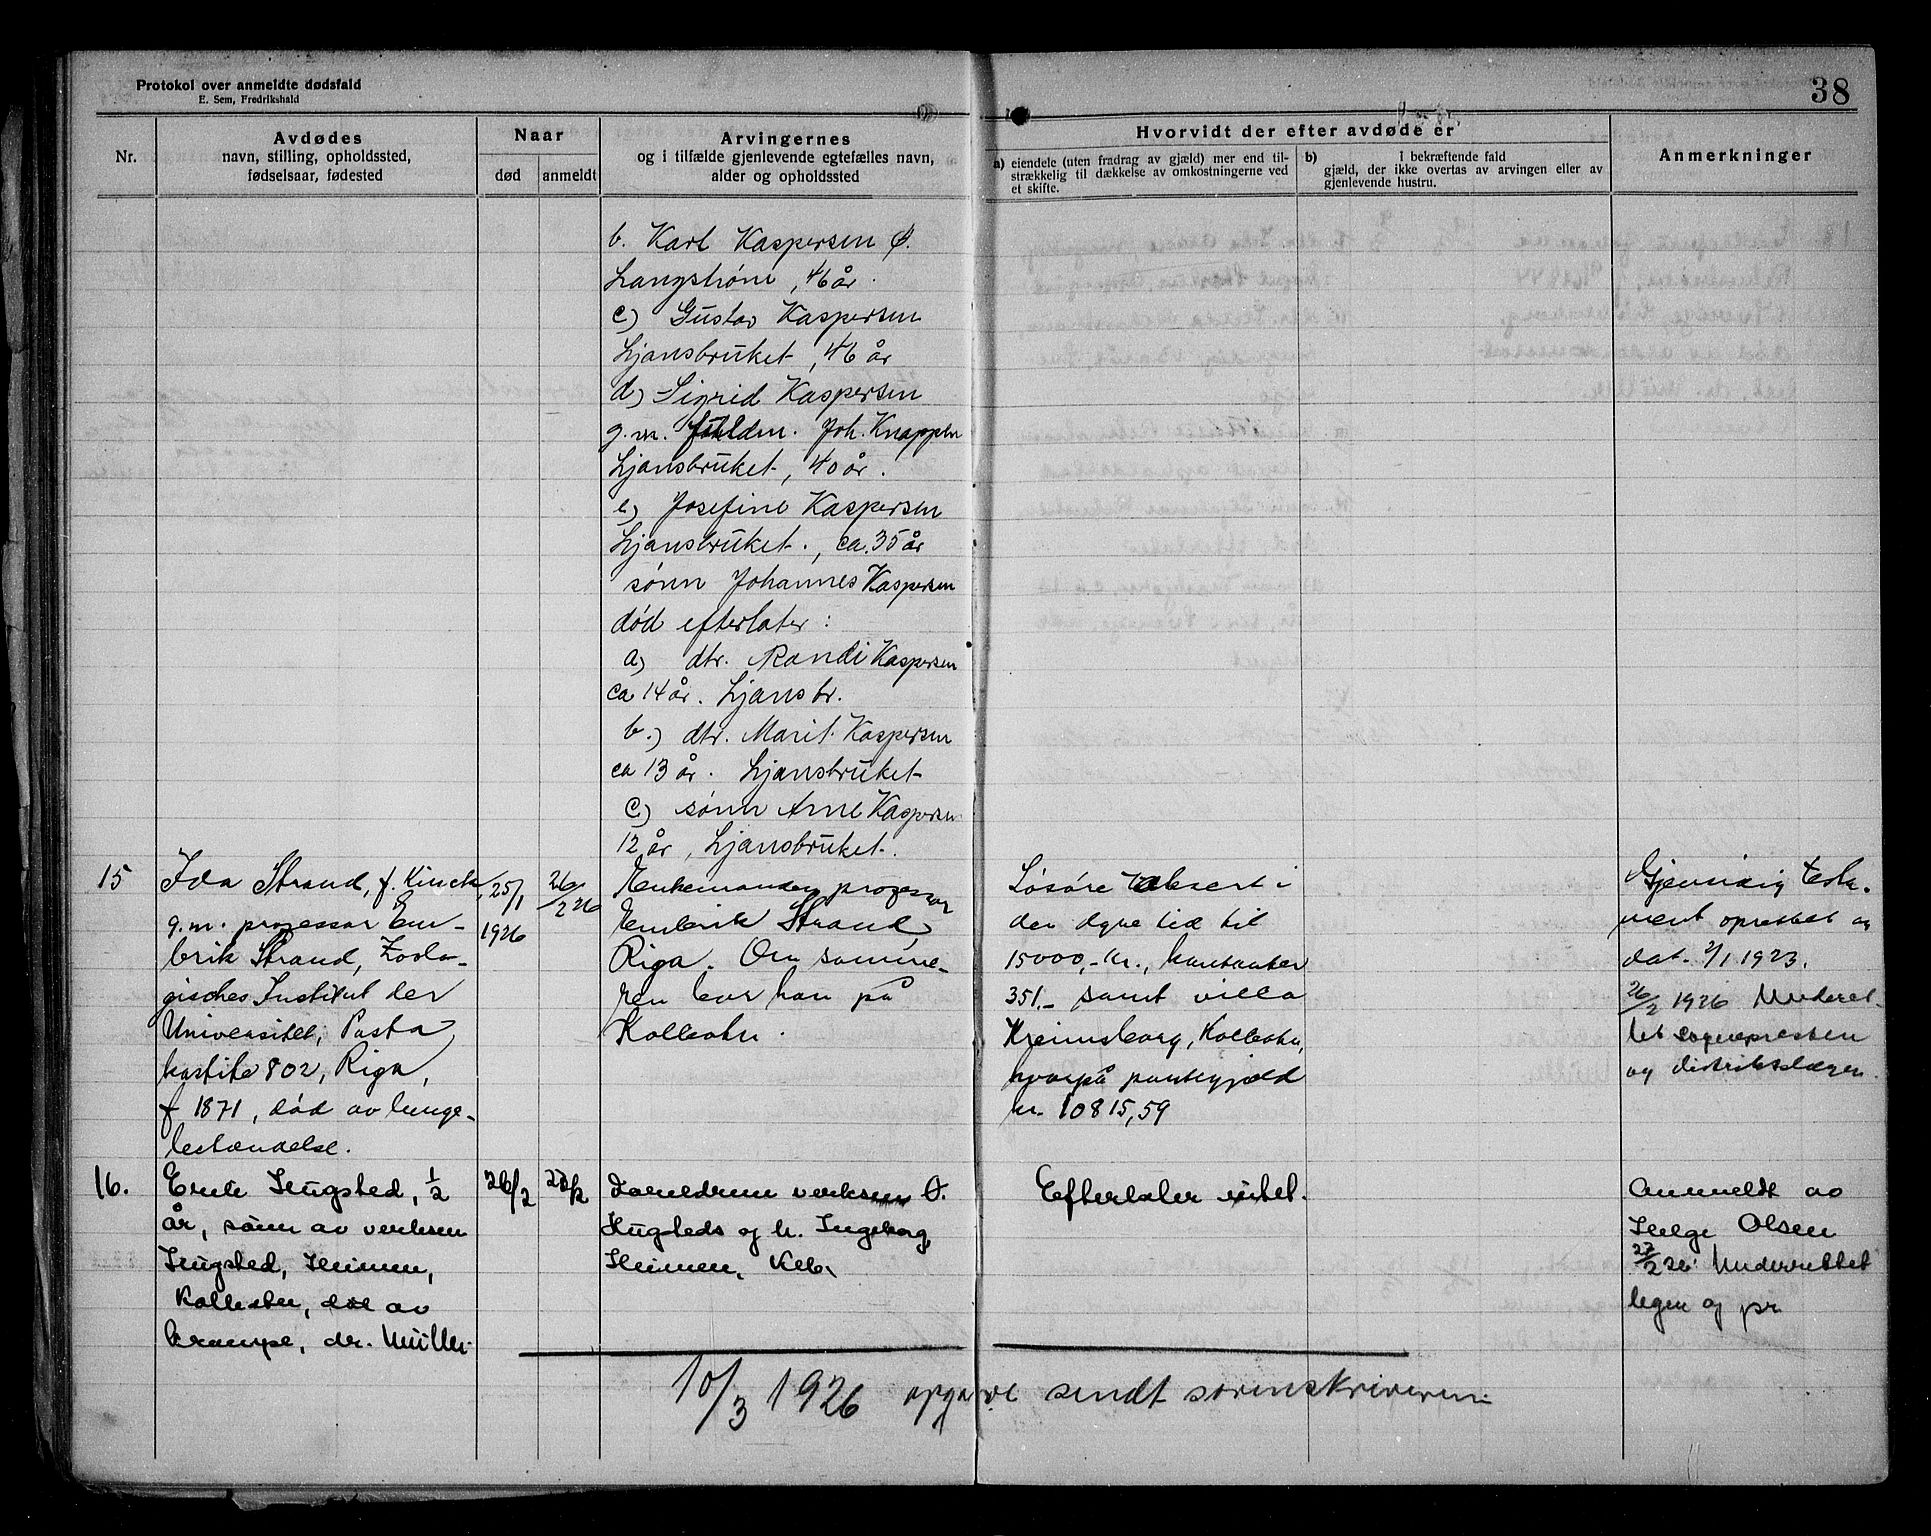 Protokol over anmeldte dødsfald
E. Sem, Fredrikshald
38
Nr.
Avdødes
navn, stilling, opholdssted,
fødselsaar, fødested
Naar
død
anmeldt
Arvingernes
og i tilfælde gjenlevende egtefælles navn,
alder og opholdssted
Hvorvidt der efter avdøde er
a) eiendele (uten fradrag av gjæld) mer end til-
strækkelig til dækkelse av omkostningerne ved
et skifte.
b) I bekræftende fald
gjæld, der ikke overtas av arvingen eller av
gjenlevende hustru.
Anmerkninger
b. Karl Kaspersen
46 år.
c) Gustav Kaspersen
Ljansbruket, 46 år
d) Sigrid Kaspersen
g.m. Joh. Knappen
Ljansbruket, 40 år.
e) Josefine Kaspersen
Ljansbruket., ca. 35 år
sønn Johannes Kaspersen
død efterlater:
a) dtr. Randi Kaspersen
ca 14 år. Ljansbr.
b.) dtr. Marit Kaspersen
ca 13 år. Ljansbruket
c) sønn Arne Kaspersen
12 år, Ljansbruket.
15
Ida Strand, f. Kinck,
g.m. professor Em-
brik Strand, Zoolo-
gisches Institut der
Universitet, Posta
kastite 802, Riga,
f 1871, død av lunge-
betændelse.
25/1
1926
26/2 26
Enkemanden professor
Embrik Strand,
Riga. Om somme-
ren bor han på
Kolbotn.
Løsøre
den dyre tid til
15000,- kr., kontanter
351.- samt villa
Kolbotn,
hvorpå pantegjæld
kr. 10815,59
Gjensidig testa-
ment oprettet av
dat. 2/1 1923.
26/2 1926 Underret-
tet sognepresten
og distriktslægen.
16.
1/2
år, sønn av
Heimen,
Kolbotn, død av
krampe, dr. Müller.
26/2
27/2
Forældrene
og h. Ingeborg,
Heimen, Kolb.
Efterlater intet.
Anmeldt av
Helge Olsen
27/2 26. Underrettet
legen og pr
10/3 1926 opgave sendt sorenskriveren